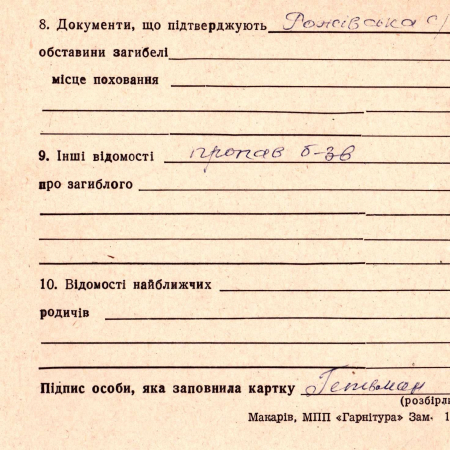 8. Документи, що підтверджують Рожівська с/
обставини загибелі
місце поховання
9. Інші відомості пропав б-зв
про загиблого
10. Відомості найближчих
родичів
Підпис особи, яка заповнила картку Гетьман
(розбірли
Макарів, МПП «Гарнітура» Зам. 1